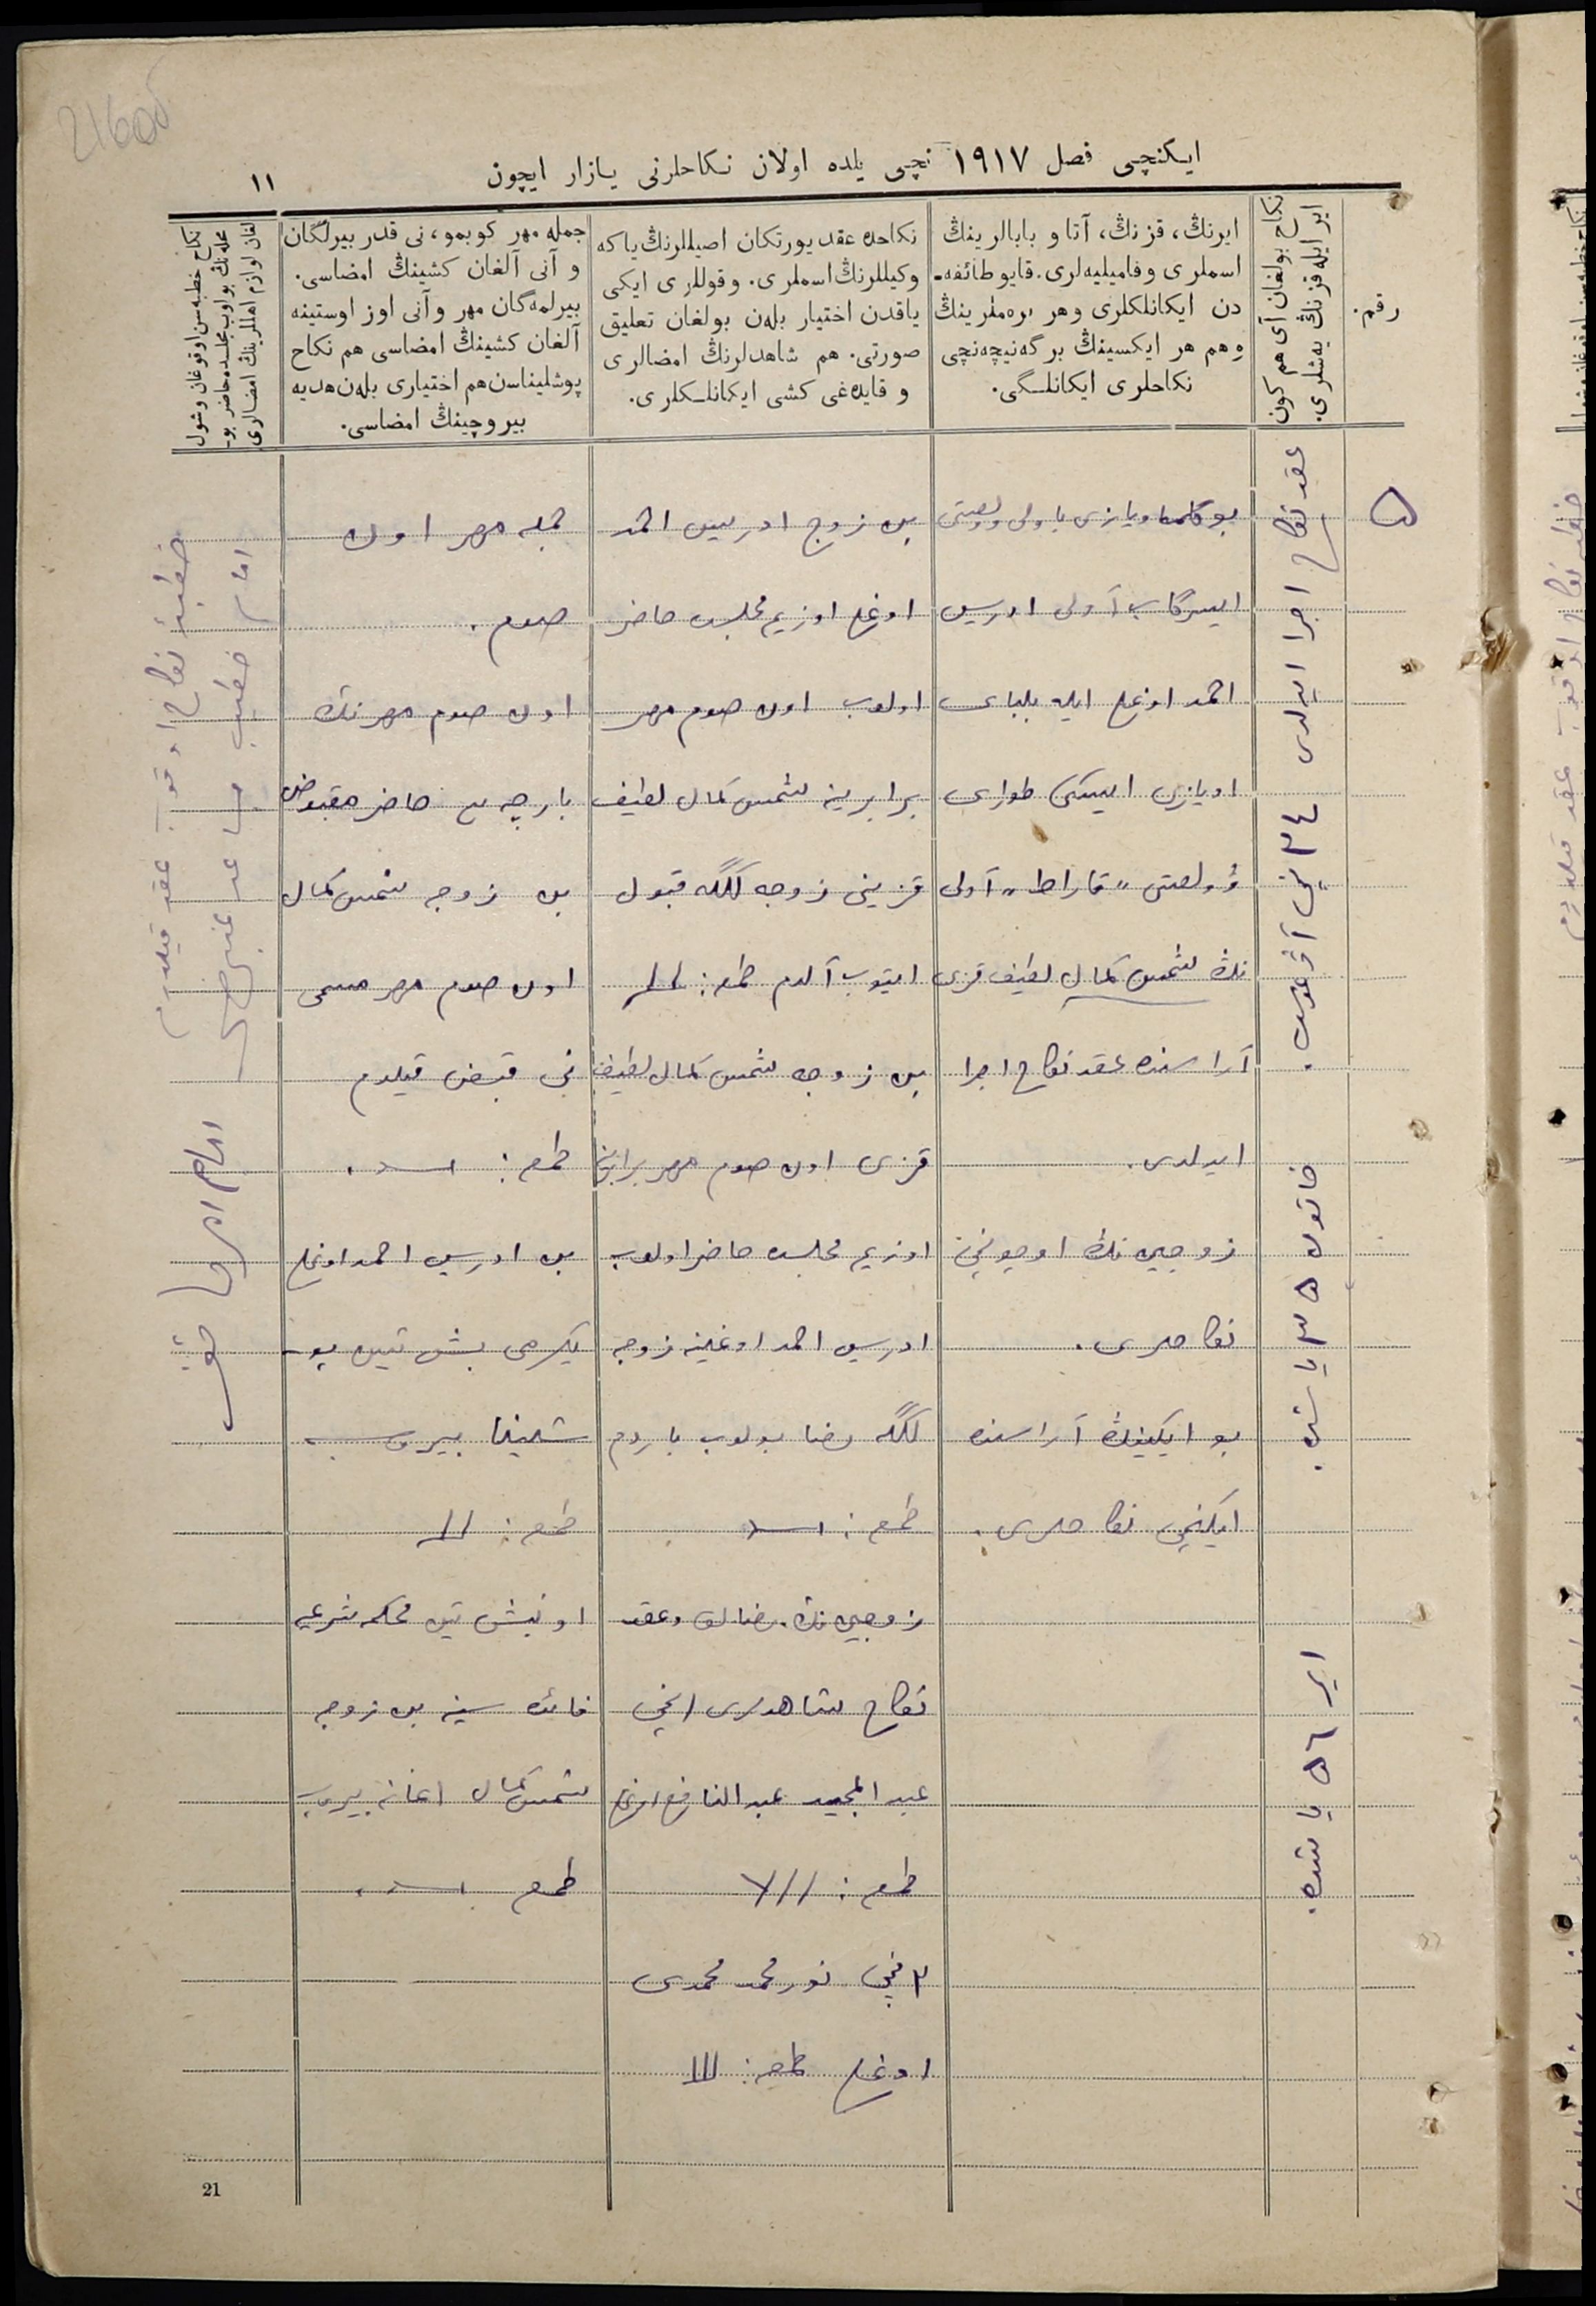 216об
ایکنچی فصل ١٩١٧ نچی یلده اولان نکاحلرنی یازار ایچون
١١
رقم.
نکاح بولغان آی هم کون
ایر ایله قزنڭ یەشلری.
ایرنڭ، قزنڭ، آتا و بابالرینڭ
اسملری و فامیلیه‌لری. قایو طائفه‌ـ
دن ایکانلکلری وهر برەملرینڭ
وهم هر ایکسینڭ برگه نیچه‌نچی
نکاحلری ایکانلـگی.
نکاحده عقد یورتکان اصیللرنڭ یا که
وکیللرنڭ اسملری. و قوللری ایکی
یاقدن اختیار بلەن بولغان تعلیق
صورتی. هم شاهدلرنڭ امضالری
و قایده‌غی کشی ایکانلـکلری.
جمله مهر کوبمو، نی قدر بیرلگان
و آنی آلغان کشینڭ امضاسی.
بیرلمه‌گان مهر و آنی اوز اوستینه
آلغان کشینڭ امضاسی هم نکاح
پوشلیناسن هم اختیاری بلەن هدیه
بیروچینڭ امضاسی.
نکاح خطبه‌سن اوقوغان وشول
محله‌نڭ بولوب مجلسده حاضر بو-
لغان لوازم اهللرینڭ امضالری
٥
عقد نکاح اجرا ایدلدی ٢٤ نچی آوغوست.
خاتون ٣٥ یاشده.
ایر ٥٦ یاشده.
بوگلما اویازی باولی وولصتی
ایسرگاب آولی ادریس
احمد اوغلی ایله بلبای
اویازی ایسکی طوارى
وولصتی „قاراط„ آولی
نڭ شمس کمال لطیف قزی
آراسنده عقد نکاح اجرا
ایدلدی.
زوجین نڭ اوچونچی
نکاحلری.
بو ایکینڭ آراسنده
ایکنچی نکاحلری.
بن زوج ادریس احمد
اوغلی اوزیم مجلسده حاضر
اولوب اون صوم مهر
برابرینه شمس کمال لطیف
قزینی زوجه لککه قبول
ایتوب آلدم طمغه:
بن زوجه شمس کمال لطیف
قزی اون صوم مهر برابرینه
اوزیم مجلسده حاضر اولوب
ادریس احمد اوغلینه زوجه
لککه رضا بولوب باردم
طمغه:
زوجین نڭ رضالق وعقد
نکاح شاهدلری ١نچی
عبد المجید عبد النافع اوغلی
طمغه: ///\
٢ نچی نور محمد محمدی
اوغلی طمغه: III
جمله مهر اون
صوم.
اون صوم مهرنڭ
بارچه سی حاضر مقبوض
بن زوجه شمس کمال
اون صوم مهر مسمی
نی قبض قیلدم
طمغه:
بن ادریس احمد اوغلی
یکرمی بش تین پو-
شلینا بیروب
طمغه:
اونبش تین محکمه شرعیه
فائده سینه بن زوجه
شمس کمال اعانه بیروب
طمغه
خطبهٔ نکاح اوقوب عقد قیلدم
امام خطیب